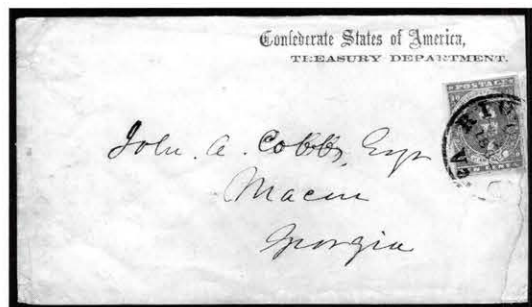 Confederate States of America,
TREASURY DEPARTMENT.
POSTAGE
John. A. Cobbs, Esqr
Macon
Georgia